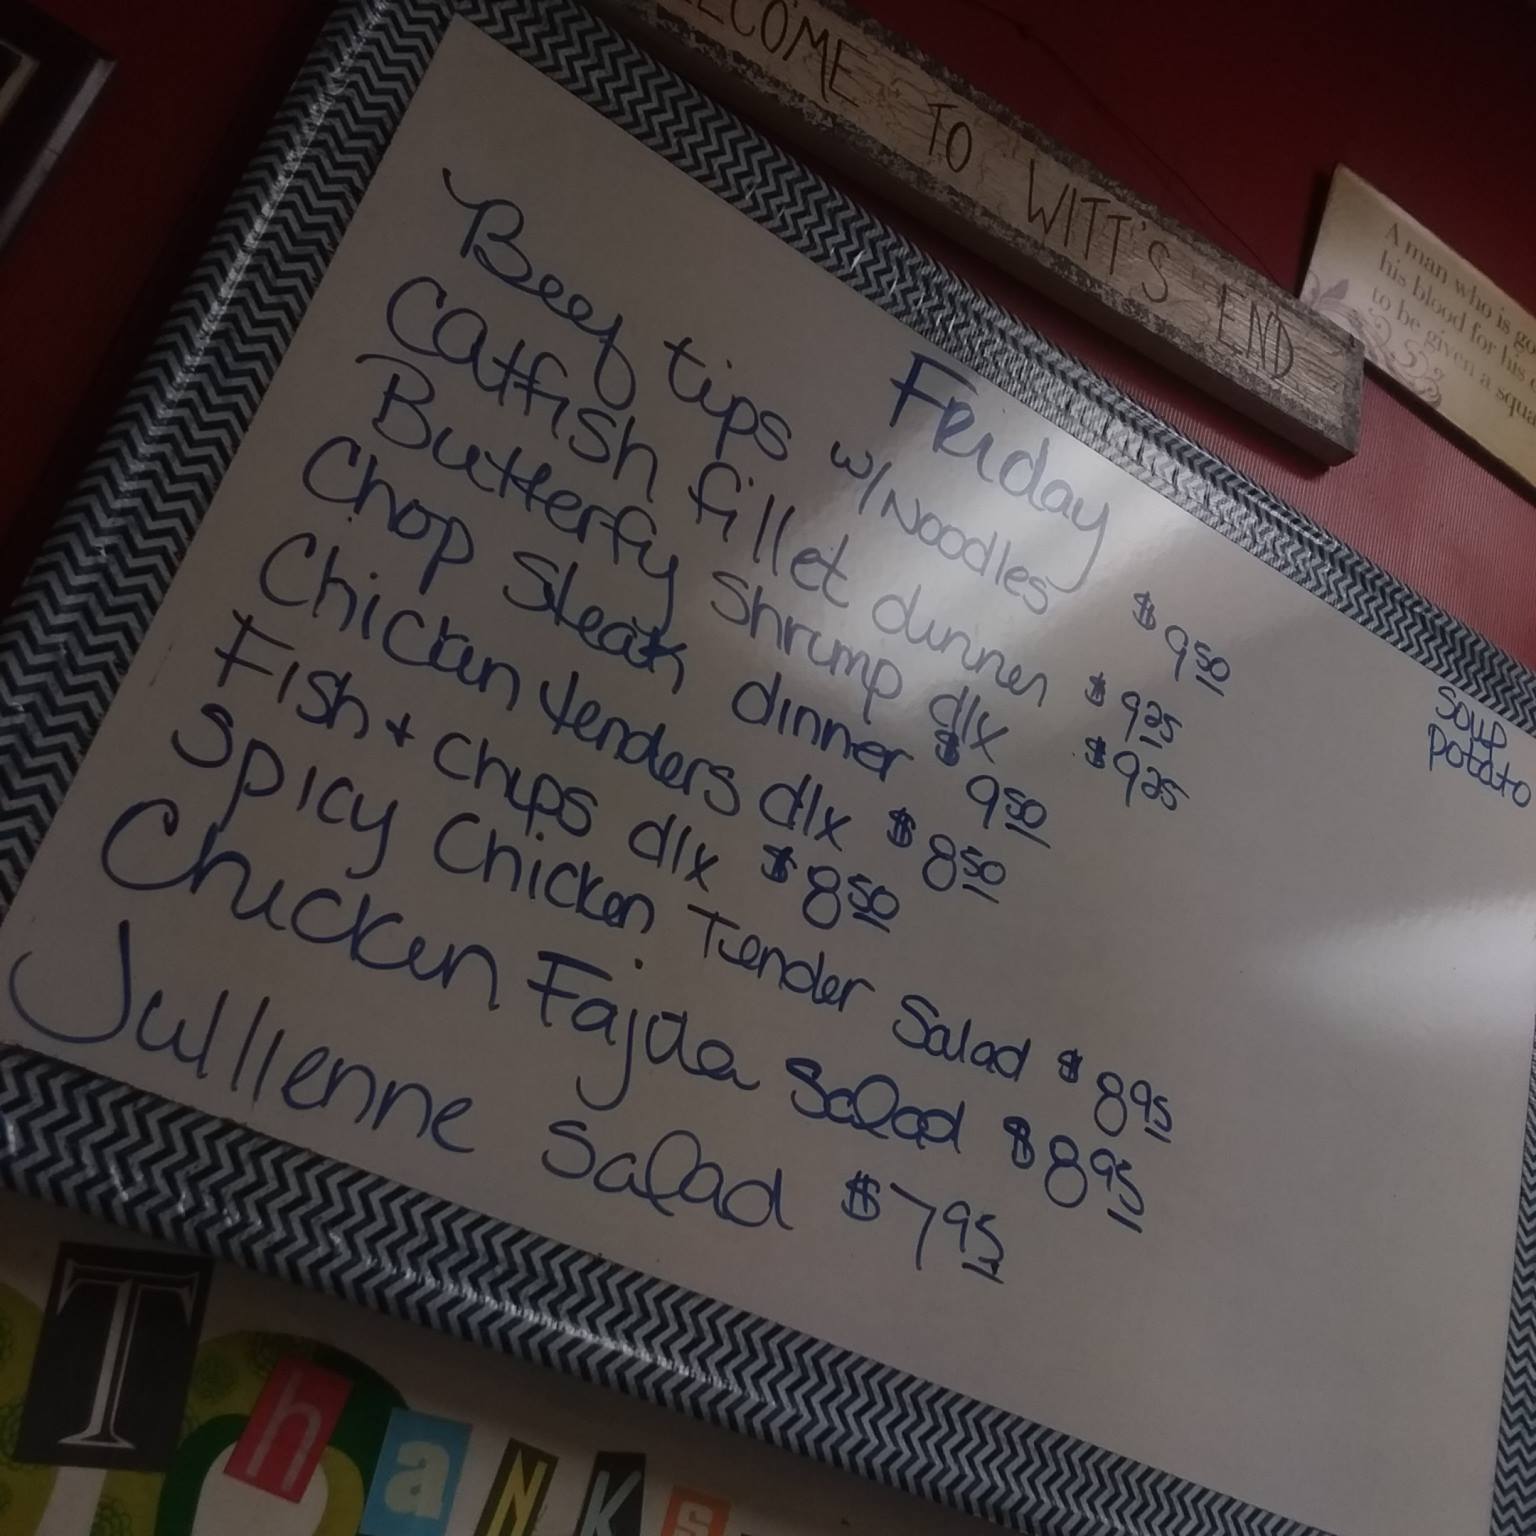 WELCOME TO WITT'S END
A man who is go
his blood for his c
to be given a squa
Friday
Beef tips w/ Noodles $9.50
Catfish fillet dinner $9.25
Butterfy Shrimp dlx $9.25
Chop Steak dinner $9.50
Chicken tenders dlx $8.50
Fish + chips dlx $8.50
Spicy Chicken Tender Salad $8.95
Chicken Fajda Salad $8.95
Jullienne Salad $7.95
Soup
Potato
ThaNKs